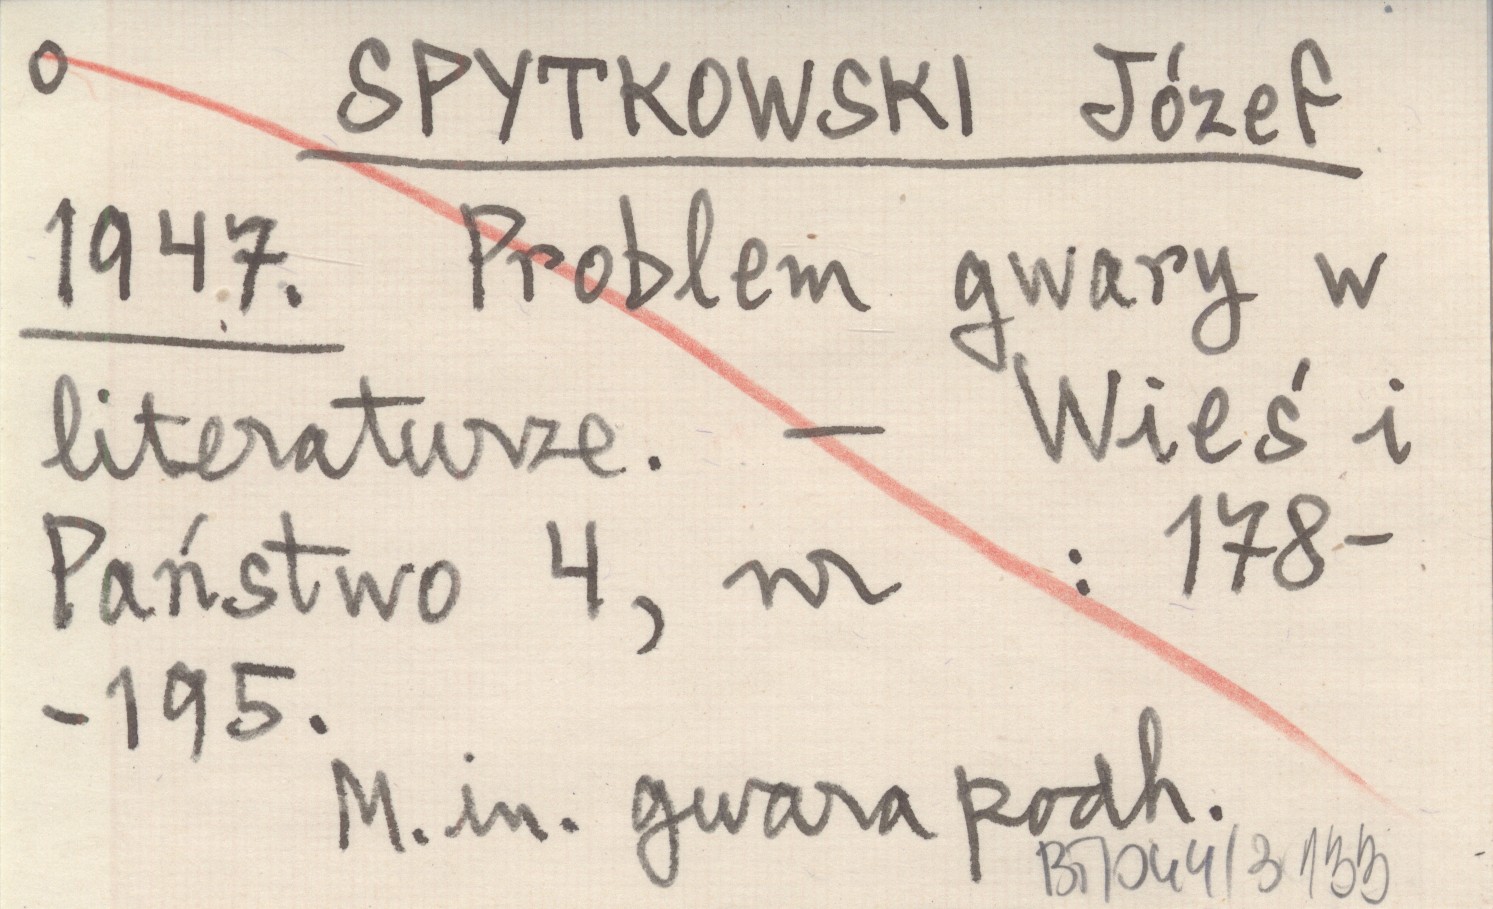 o SPYTKOWSKI Józef
1947. Problem gwary w
literaturze. — Wieś i
Państwo 4, nr : 178-
-195.
M. in. gwara podh.
133